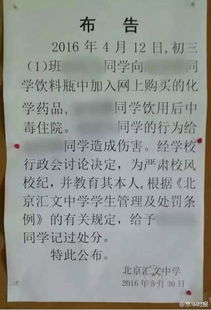 布 告
2016年4月12日,初三
(1)班 同学向 同
学饮料瓶中加入网上购买的化
学药品, 同学饮用后中
毒住院。 同学的行为给
同学造成伤害。经学校
行政会讨论决定,为严肃校风
校纪,并教育其本人,根据《北
京汇文中学学生管理及处罚条
例》的有关规定,给予
同学记过处分。
特此公布。
北京汇文中学
2016年5月30日
@京华时报